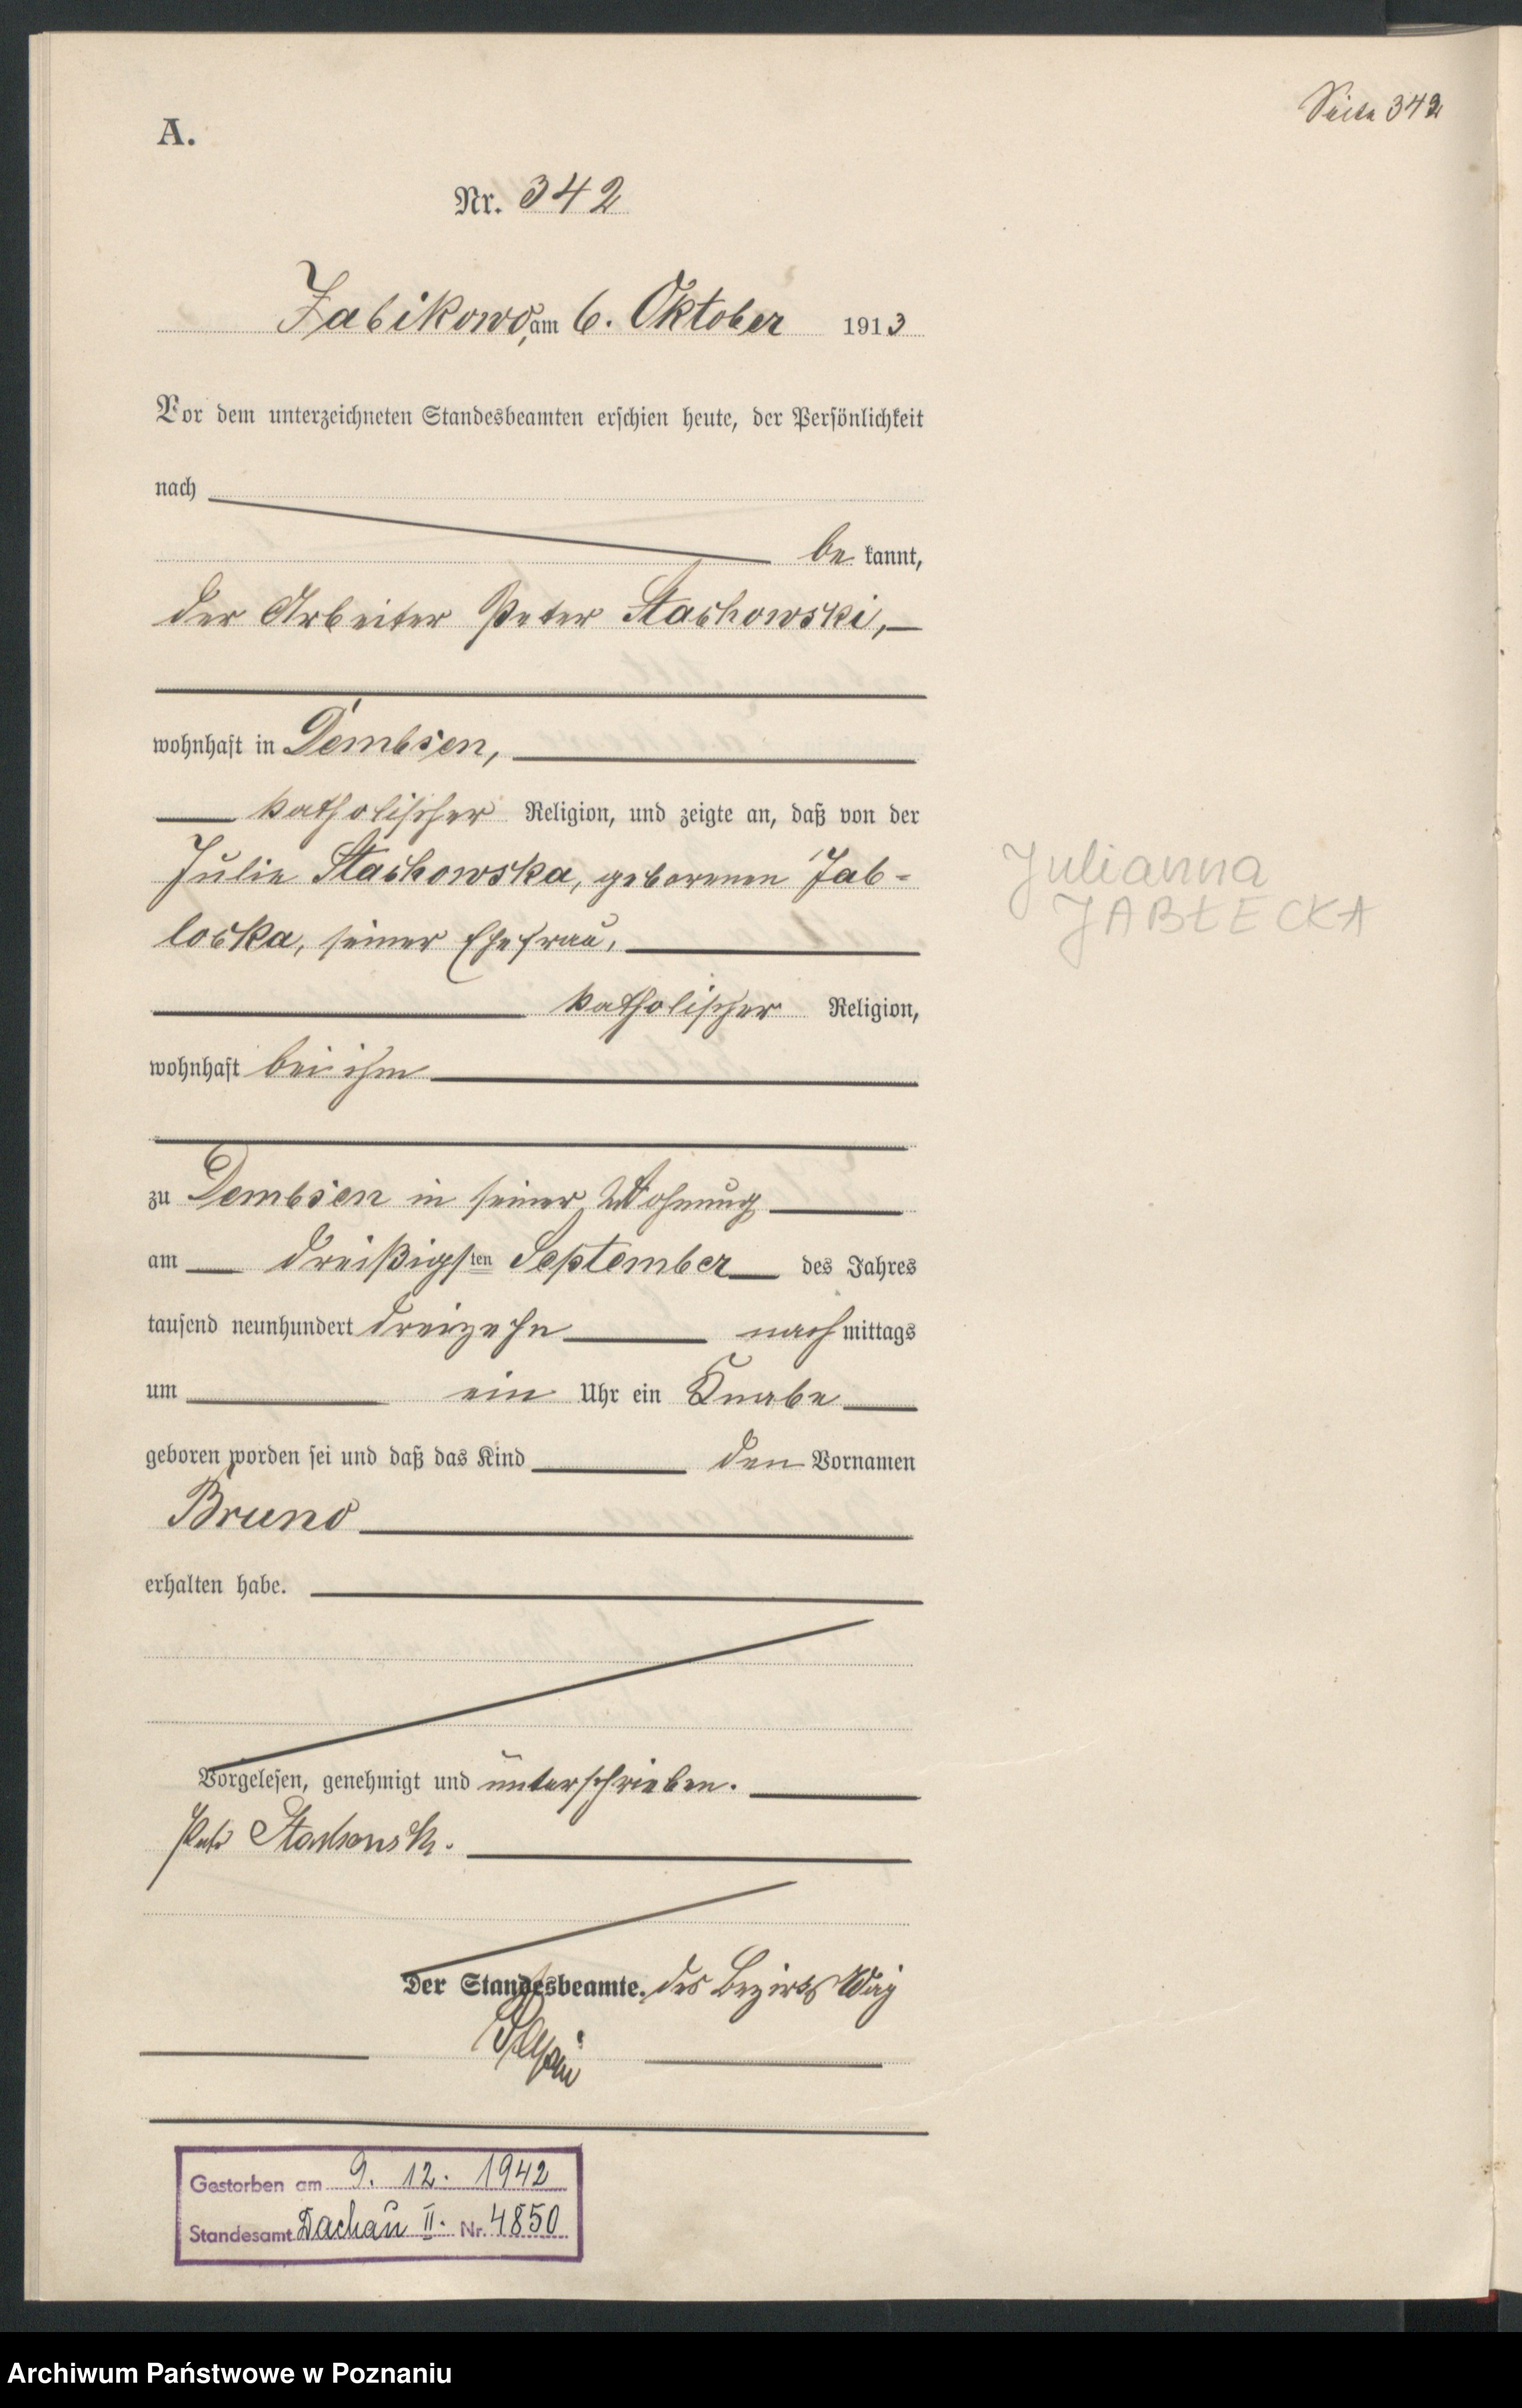 Seite 342
A.
Nr. 342
Zabikowo, am 6. Oktober 1913
Vor dem unterzeichneten Standesbeamten erschien heute, der Persönlichkeit
nach
be kannt,
der Arbeiter Peter Stachowski,
wohnhaft in Dembsen,
katholischer Religion, und zeigte an, daß von der
Julie Stachowska, geborenen Jab-
locka, seiner Ehefrau,
Julianna
JABŁECKA
katholischer Religion,
wohnhaft bei ihm
zu Dembsen in seiner Wohnung
am dreißigsten September des Jahres
tausend neunhundert dreizehn nachmittags
um ein Uhr ein Knabe
geboren worden sei und daß das Kind den Vornamen
Bruno
erhalten habe.
Vorgelesen, genehmigt und unterschrieben.
Stachowski.
Der Standesbeamte. des Bezirks
Gestorben am 9. 12. 1942
Standesamt Dachau II. Nr. 4850
Archiwum Państwowe w Poznaniu